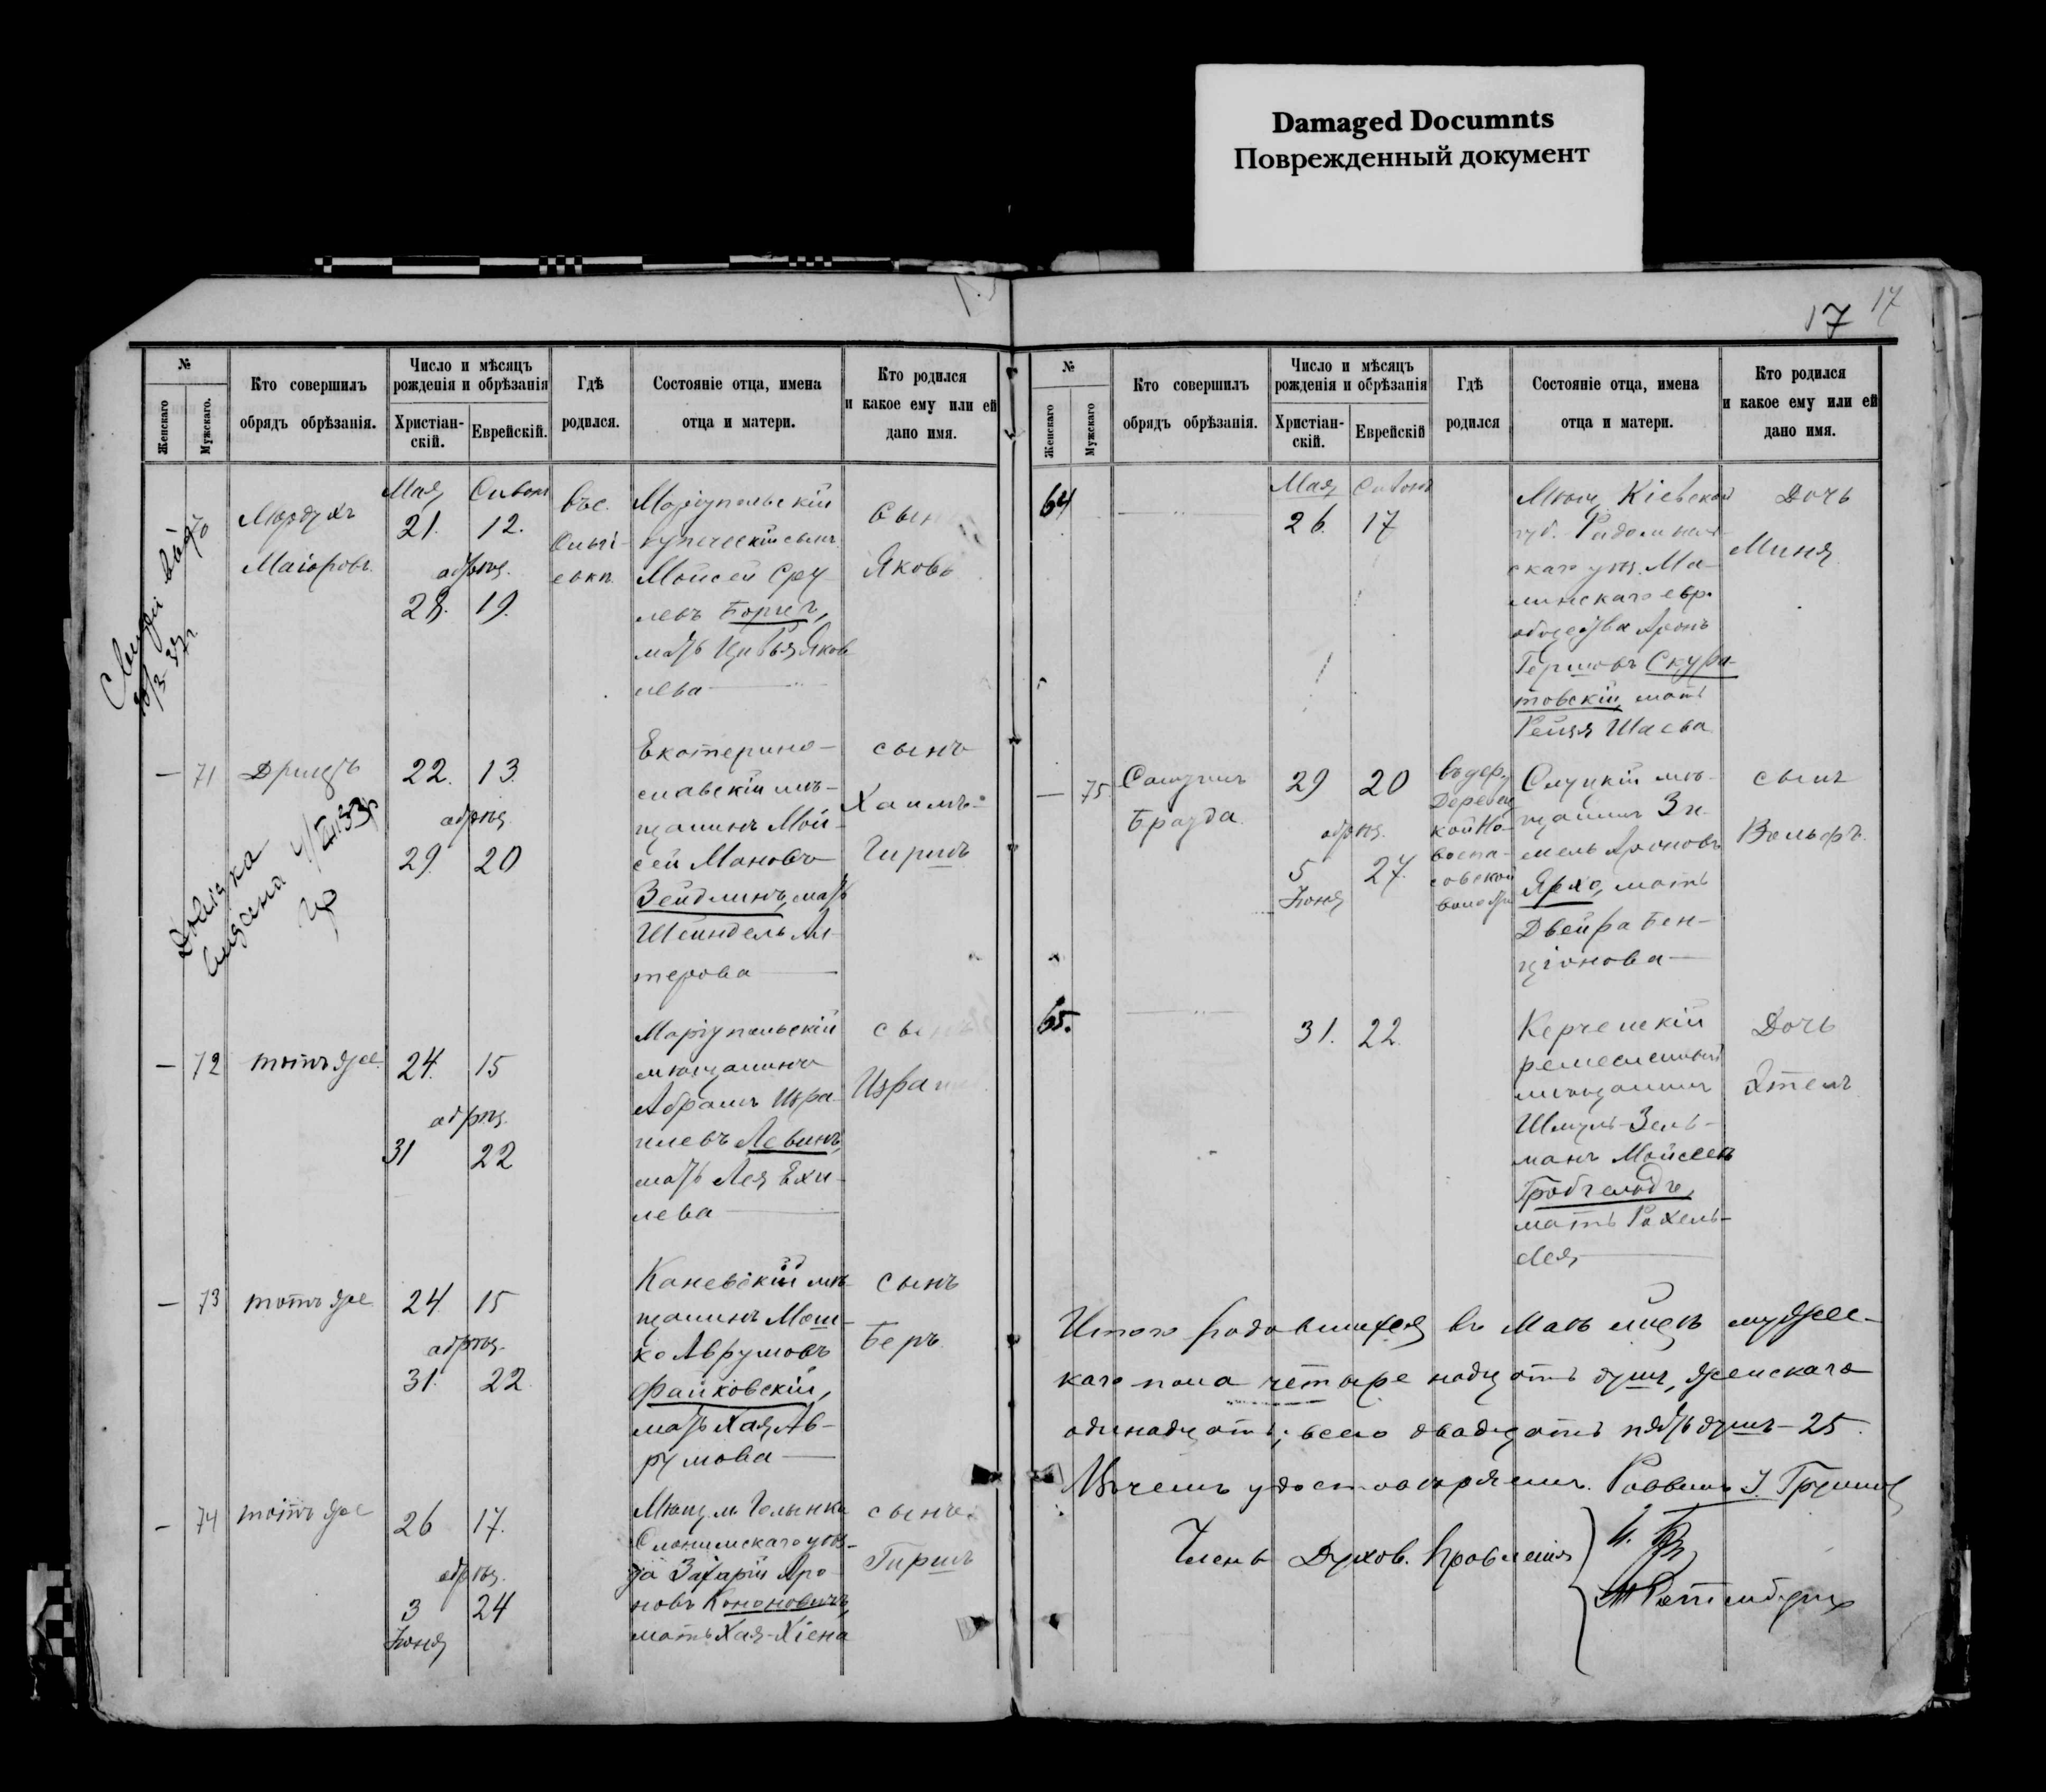 Damaged Documnts
Поврежденный документ
17
17
№
Женскаго
Мужскаго.
Кто совершилъ
обрядъ обрѣзанія.
Число и мѣсяцъ
рожденія и обрѣзанія
Христіан-
скій.
Еврейскій.
Гдѣ
родился.
Состояніе отца, имена
отца и матери.
Кто родился
и какое ему или ей
дано имя.
70
Мордухъ
Маіоровъ.
Мая
21.
обрѣз.
28.
Сивонъ
12.
19.
Въ с.
Маріупольскій
купеческій сынъ
Мойсей Сру
левъ
мать Цивья Яков
лева
Сынъ
Яковъ
— 71
22. 13.
обрѣз.
29. 20
Екатерино-
славскій мѣ-
щанинъ Мой-
сей Мановъ
Зейдлинъ, мать
Шейндель Ли-
терова
сынъ
Хаимъ-
Гиршъ
— 72
тотъ же
24. 15
обрѣз.
31 22
Маріупольскій
мѣщанинъ
Абрамъ Изра-
илевъ Левинъ,
мать Лея Ехи-
лева
сынъ
— 73
тотъ же
24. 15
обрѣз.
31. 22
Каневскій мѣ-
щанинъ Мош-
ко Аврумовъ
Файковскій,
мать Хая Ав-
румова
сынъ
Беръ.
— 74
тотъ же
26 17.
обрѣз.
3 24
Іюня
Мѣщ. м. Голынки
Слонимскаго уѣз-
да Захарій Аро-
новъ Кононовичъ,
мать Хая-Хіена
сынъ
Гиршъ
№
Женскаго
Мужскаго
Кто совершилъ
обрядъ обрѣзанія.
Число и мѣсяцъ
рожденія и обрѣзанія
Христіан-
скій.
Еврейскій
Гдѣ
родился
Состояніе отца, имена
отца и матери.
Кто родился
и какое ему или ей
дано имя.
64
Мая
26.
Сивонъ
17
Мѣщ. Кіевской
губ. Радомысль-
скаго уѣз. Ма-
линскаго евр.
общества Аронъ
Гершовъ Скура-
товскій, мать
Рейзя Шаева
Дочь
Миня
— 75
Самуилъ
Брауда.
29 20
обрѣз.
5 27.
Іюня
въ дер.
Слуцкій мѣ-
щанинъ Зи-
мель Ароновъ
Ярхо, мать
Двейра Бен-
ціонова
сынъ
Вольфъ.
65.
31. 22.
Керченскій
ремесленный
мѣщанинъ
Шмуль-Зель-
манъ Мойсеевъ
мать Рахель-
Лея
Дочь
Этель
Итого родившихся въ Маѣ мѣс. мужес-
каго пола четыре надцать душъ, женскаго
одинадцать; всего двадцать пять душъ — 25.
Въ чемъ удостовѣряемъ. Раввинъ
Члены Духов. Правленія